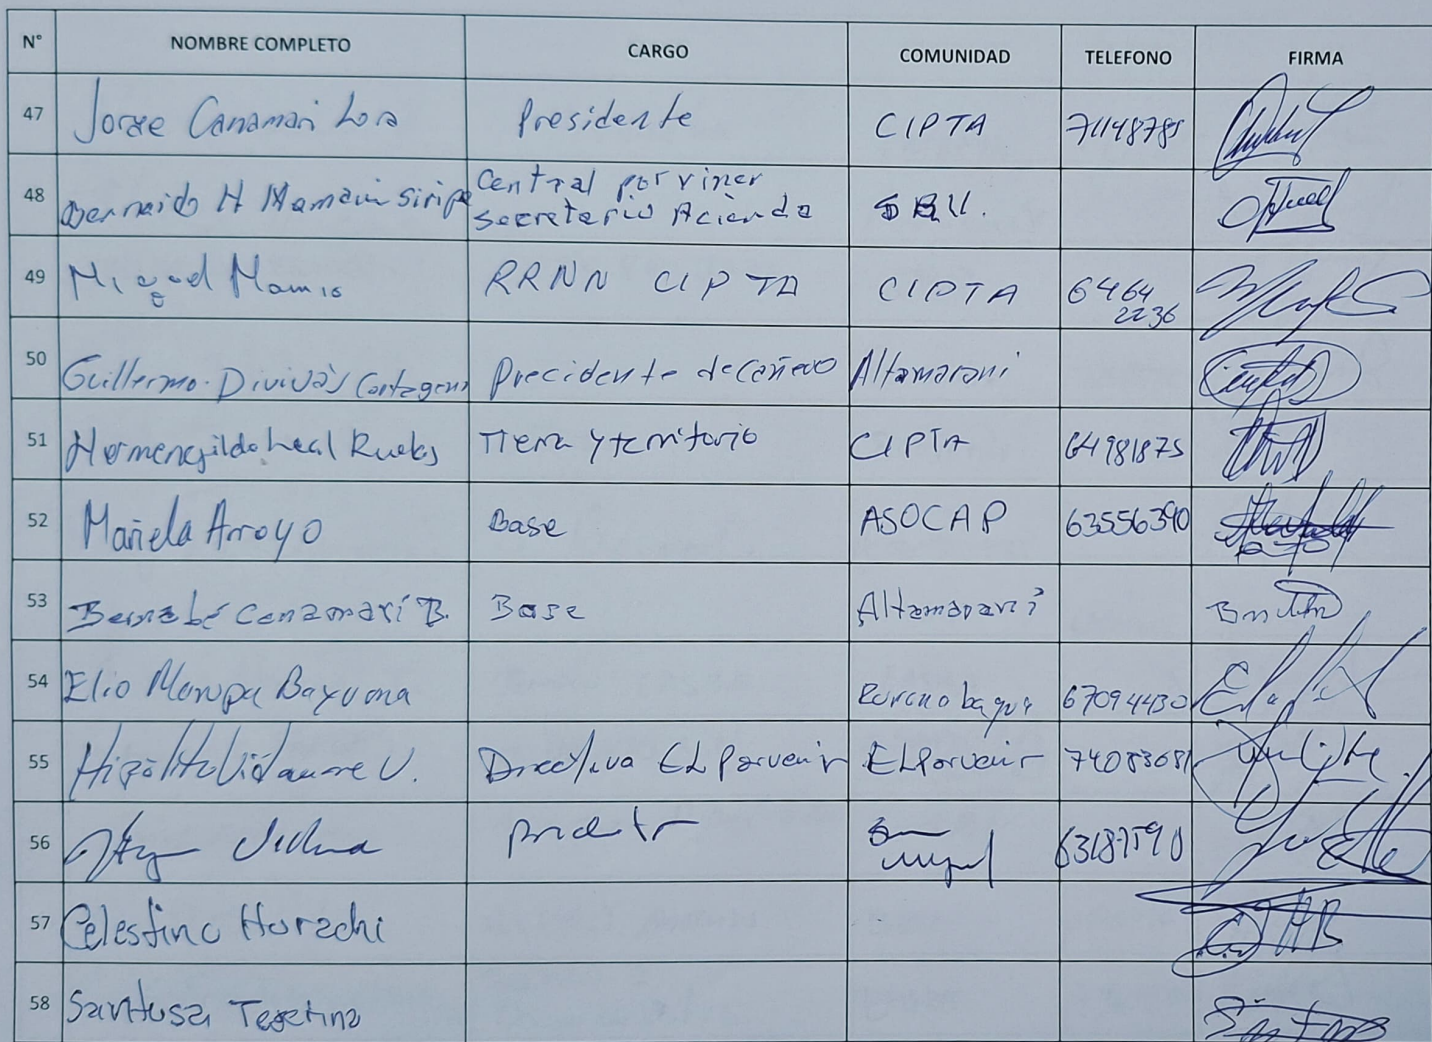 N° NOMBRE COMPLETO CARGO COMUNIDAD TELEFONO FIRMA
47 Jorge Canamari Lora Presidente CIPTA 71148785
48 H Mamani Siripi Central porviner
Secretario Acienda
49 Miguel Mamio RRNN CIPTA CIPTA 6464
2236
50 Guillermo Divivás Cartagena Precidente de Altamarani
51 Hermenegildo Leal Tierra y territorio CIPTA 64981875
52 Mariela Arroyo Base ASOCAP 63556390
53 Bernabé Canamari B. Base Altamarani
54 Elio Marupa Bayuma 67094430
55 Hipólito Vidaurre V. Directiva EL Porvenir EL Porvenir 74083681
56 San
Miguel
57 Celestino Hurachi
58 Santusa